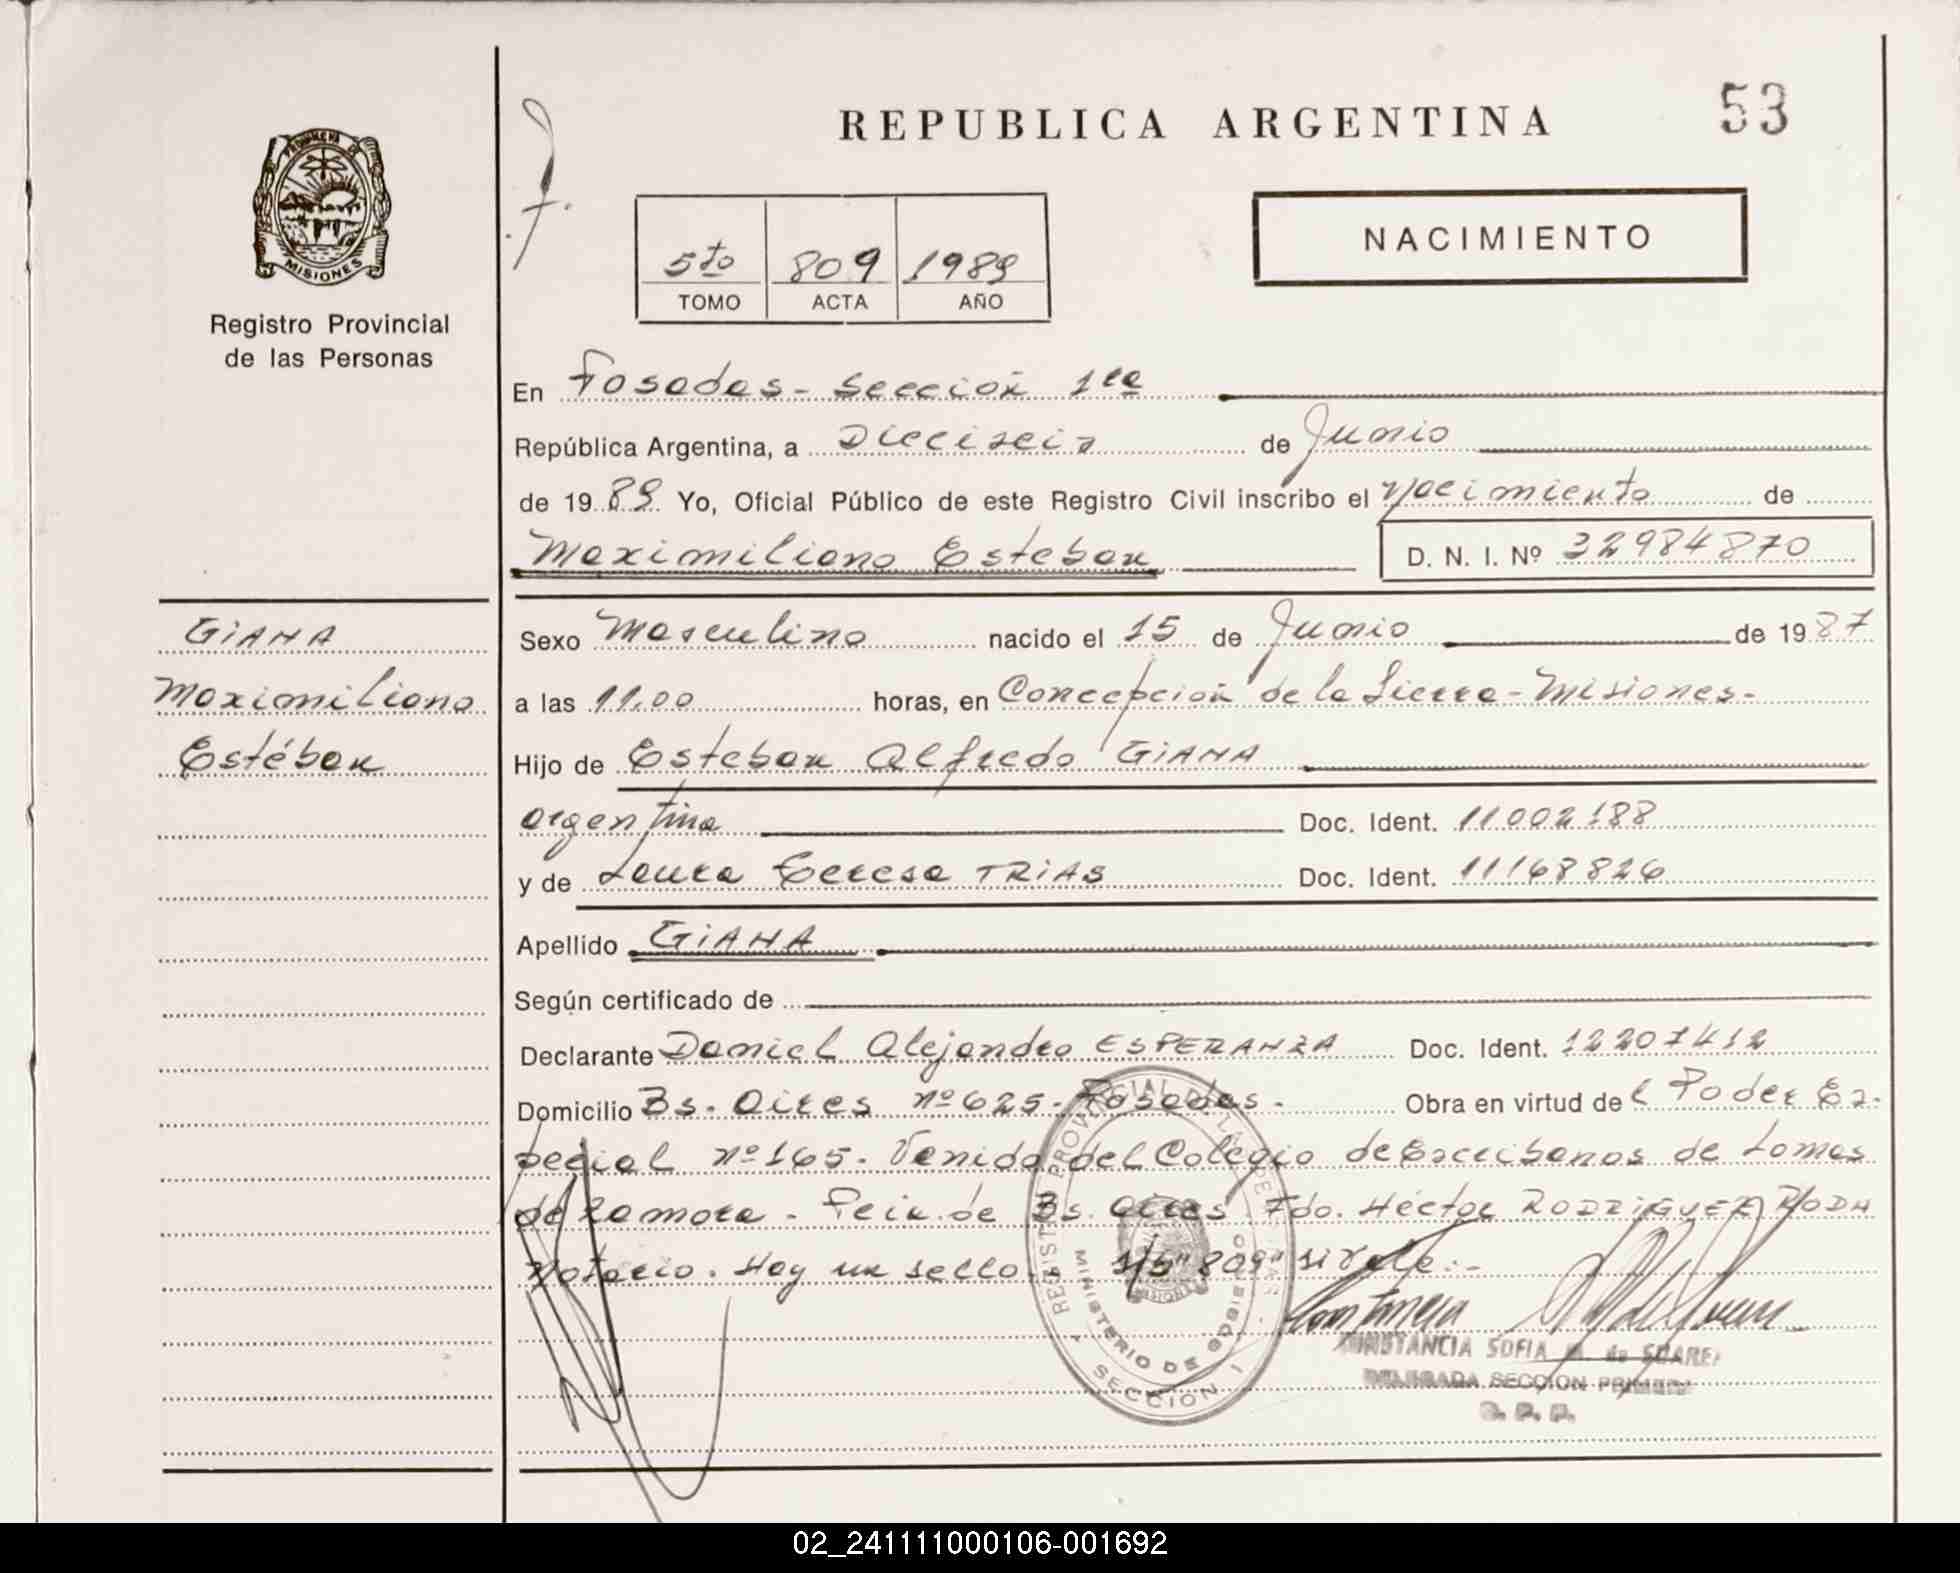 53
REPUBLICA ARGENTINA
PROVINCIA DE
MISIONES
Registro Provincial
de las Personas
NACIMIENTO
5to 809 1989
TOMO ACTA AÑO
En Posadas - Sección 1ra
República Argentina, a Dieciseis de Junio
de 1989 Yo, Oficial Público de este Registro Civil inscribo el nacimiento de
Maximiliano Esteban D. N. I. Nº 32984870
GIANA
Maximiliano
Estéban
Sexo Masculino nacido el 15 de Junio de 1987
a las 11,00 horas, en Concepción de la Sierra - Misiones -
Hijo de Esteban Alfredo GIANA
argentino Doc. Ident. 11002188
y de Laura Teresa TRIAS Doc. Ident. 11168826
Apellido GIANA
Según certificado de
Declarante Daniel Alejandro ESPERANZA Doc. Ident. 12207412
Domicilio Bs. Aires nº 625 - Posadas - Obra en virtud del Poder Es-
pecial nº 165. Venido del Colegio de Escribanos de Lomas
de Zamora - Pcia. de Bs. Aires Fdo. Héctor RODRIGUEZ RODA
Notario. Hay un sello. s/b "809" si vale.-
REGISTRO PROVINCIAL DE LAS PERSONAS
MINISTERIO DE GOBIERNO
MISIONES
SECCION I
CONSTANCIA SOFIA M. de SUAREZ
DELEGADA SECCION PRIMERA
R. P. P.
02_241111000106-001692